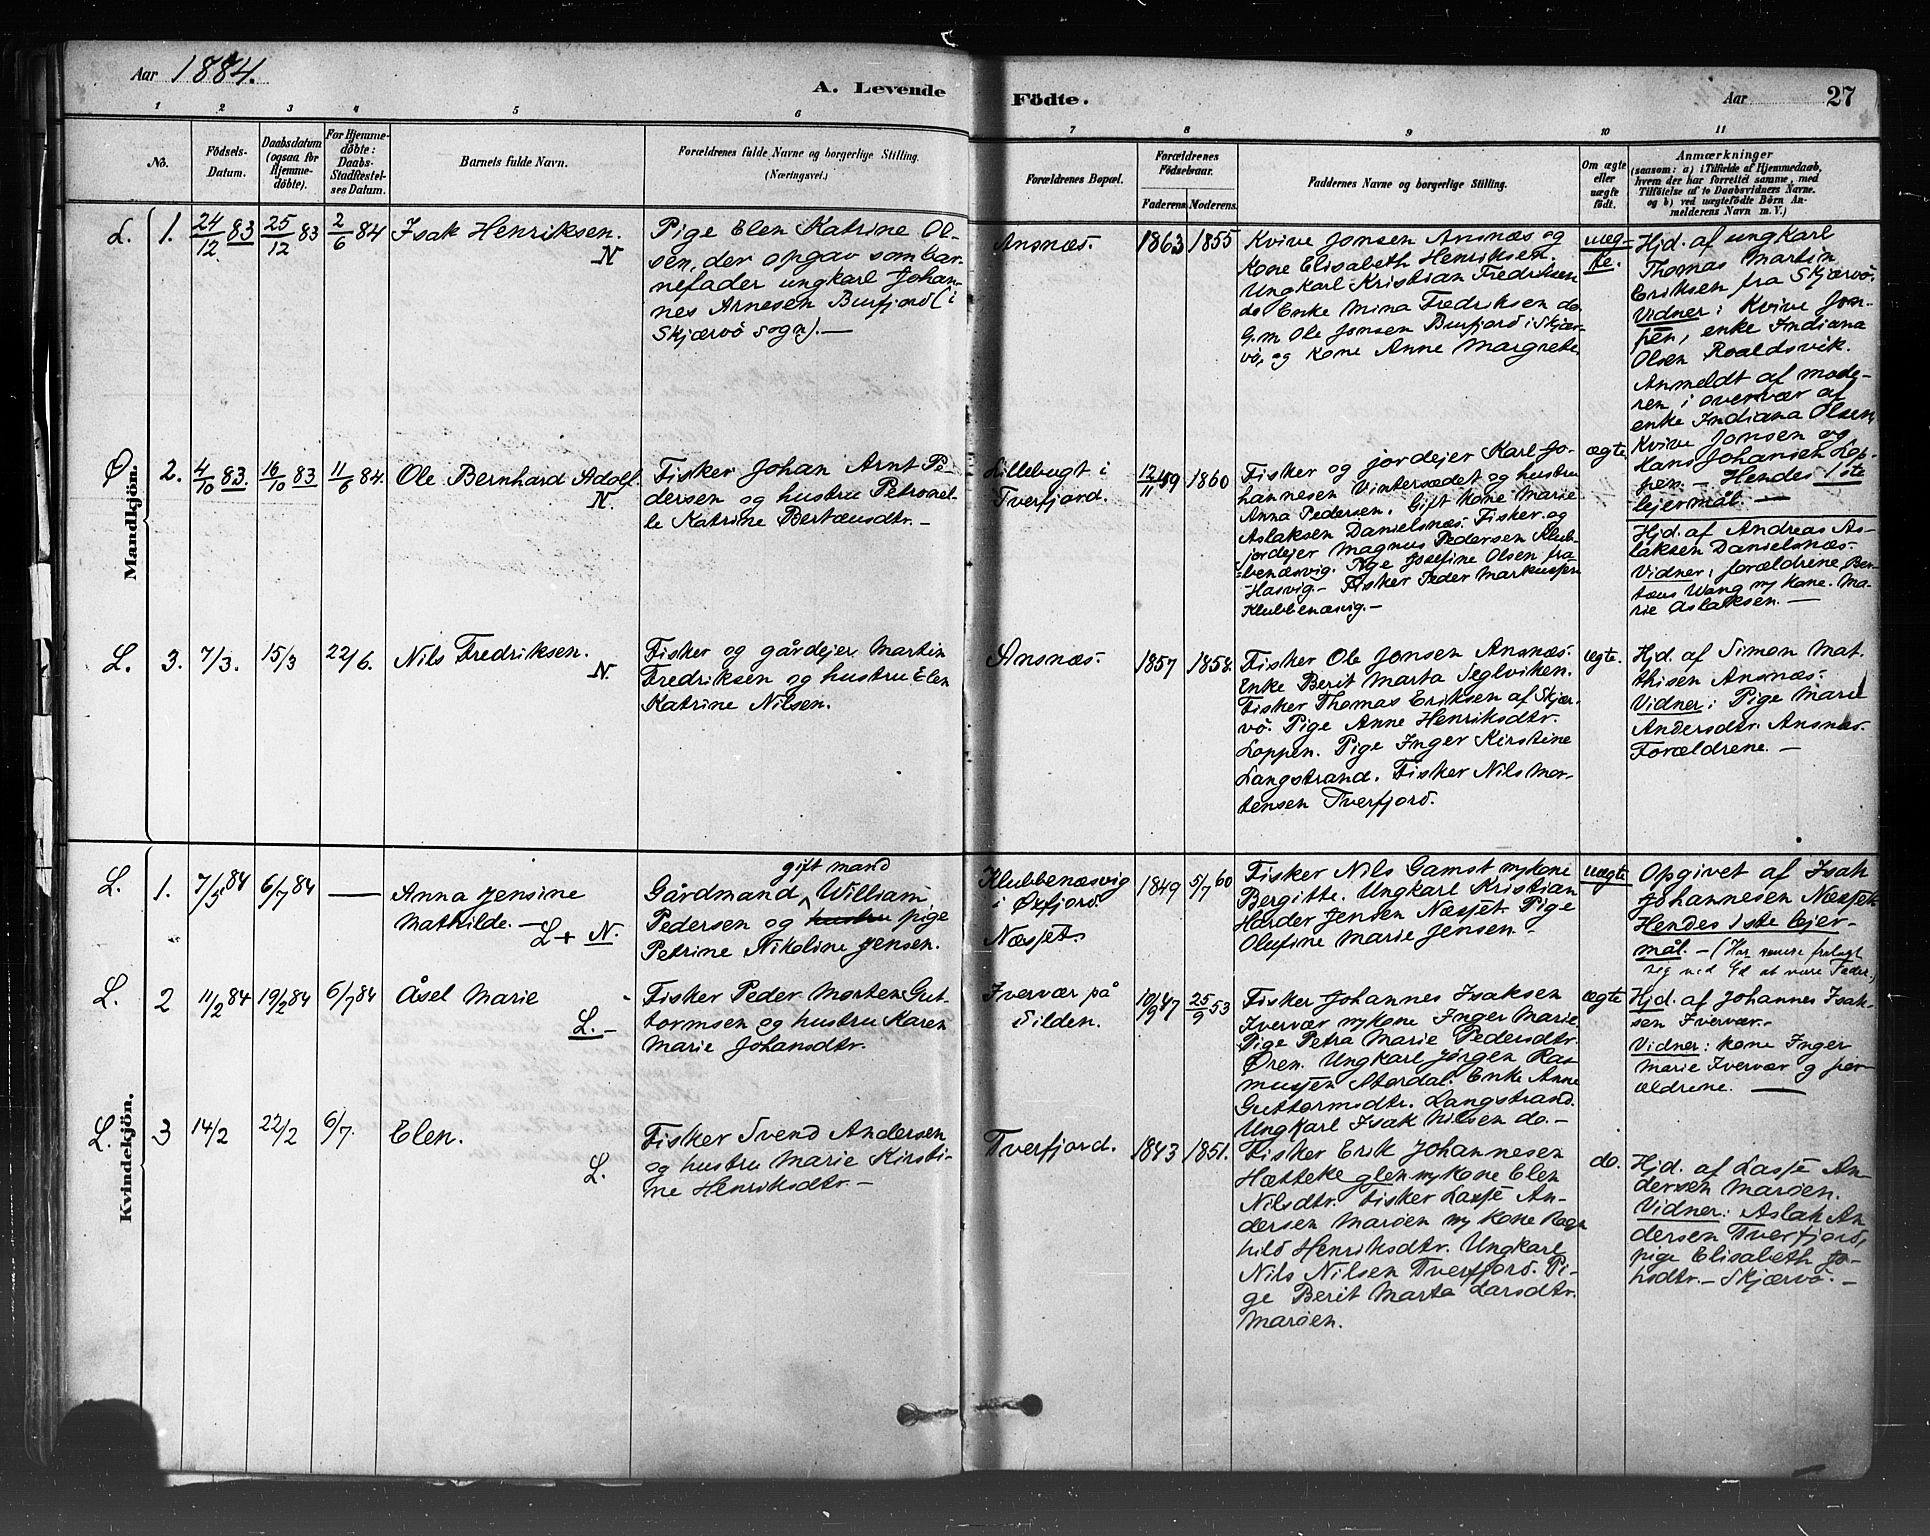 Aar 1884.
A. Levende
Födte.
Aar
27
1
2
3
4
5
6
7
8
9
10
11
No.
Födsels-
Datum.
Daabsdatum
(ogsaa for
Hjemme-
döbte).
For Hjemme-
döbte:
Daabs-
Stadfæstel-
ses Datum.
Barnets fulde Navn.
Forældrenes fulde Navne og borgerlige Stilling.
(Næringsvei.)
Forældrenes Bopæl.
Forældrenes
Födselsaar.
Faderens.
Moderens.
Faddernes Navne og borgerlige Stilling.
Om ægte
eller
uægte
födt.
Anmærkninger
(saasom: a) i Tilfælde af Hjemmedaab,
hvem der har forrettet samme, med
Tilföielse af to Daabsvidners Navne.
og b) ved uægtefödte Börn An-
melderens Navn m. V.)
Mandkjön.
L.
1.
24/12 83
25/12 83
2/6 84
Isak Henriksen.
N
Pige Elen Katrine Ol-
sen, der opgav som bar-
nefader ungkarl Johan-
nes Arnesen Burfjord (i
Skjærvö sogn). —
Ansnæs.
1863
1855
Kvive Jonsen Ansnæs og
Kone Elisabeth Henriksen.
Ungkarl Kristian Fredriksen
do Enke Mina Fredriksen do.
G.m. Ole Jonsen Burfjord i Skjær-
vö, og Kone Anne Margrete
uæg-
te.
Hjd. af ungkarl
Thomas Martin
Eriksen fra Skjærvö.
Vidner: Kvive Jon-
sen, enke Indiana
Olsen Roaldsvik.
Anmeldt af mode-
ren i overvær af
enke Indiana Olsen,
Kvive Jonsen og
Hans Johansen Lop-
pen. — Hendes 1ste
lejermål. —
Ø
2.
4/10 83
16/10 83
11/6 84.
Ole Bernhard Adolf
N.
Fisker Johan Arnt Pe-
dersen og hustru Petronel-
le Katrine Bertæusdtr. —
Lillebugt i
Tverfjord.
12/11 59
1860
Fisker og jordejer Karl Jo-
hannesen Vintersædet og hustru
Anna Pedersen. Gift Kone Marie
Aslaksen Danielsnæs. Fisker og
jordejer Magnus Pedersen Klub-
benæsvig. Pige Josefine Olsen fra
Hasvig. — Fisker Peder Markussen
Klubbenæsvig. —
ægte
Hjd. af Andreas As-
laksen Danielsnæs.
Vidner: forældrene, Ber-
tæus Wang m/ Kone. Ma-
rie Aslaksen. —
L.
3.
7/3.
15/3
22/6.
Nils Fredriksen.
N.
Fisker og gårdejer Martin
Fredriksen og hustru Elen
Katrine Nilsen.
Ansnæs.
1857
1858.
Fisker Ole Jonsen Ansnæs.
Enke Berit Marta Seglviken.
Fisker Thomas Eriksen af Skjær-
vö. Pige Anne Henriksdtr.
Loppen. Pige Inger Kirstine
Langstrand. Fisker Nils Mor-
tensen Tverfjord.
ægte.
Hjd. af Simon Mat-
thisen Ansnæs.
Vidner: Pige Marie
Andersdtr. Ansnæs.
Forældrene. —
Kvindekjön.
L.
1.
7/5 84
6/7 84
—
Anna Jensine
Mathilde. —
L + N.
gift mand
Gårdmand William
Pedersen og hustru pige
Petrine Nikoline Jensen.
Klubbenæsvig
i Øxfjord.
Næsset.
1849
5/7 60
Fisker Nils Gamst m/ kone
Bergitte. Ungkarl Kristian
Harder Jensen Næsset. Pige
Olufine Marie Jensen.
uægte
Opgivet af Isak
Johannesen Næsset.
Hendes 1ste lejer-
mål. — (Har senere fralagt
sig ved Ed at være Fader.)
L.
2
11/2 84
19/2 84
6/7 84
Åsel Marie
L. —
Fisker Peder Morten Gut-
tormsen og hustru Karen
Marie Johansdtr.
Ivervær på
Silden.
10/9 47
25/9 53
Fisker Johannes Isaksen
Ivervær m/ kone Inger Marie.
Pige Petra Marie Pedersdtr.
Øren. Ungkarl Jörgen Ras-
mussen Atterdal. Enke Anne
Guttormsdtr. Langstrand.
Ungkarl Isak Nilsen do. —
ægte
Hjd. af Johannes Isak-
sen Ivervær. —
Vidner: kone Inger
Marie Ivervær og for-
ældrene. —
L.
3
14/2
22/2
6/7.
Elen.
L.
Fisker Svend Andersen
og hustru Marie Kirsti-
ne Henriksdtr. —
Tverfjord.
1843
1851.
Fisker Erik Johannesen
Hætteke glen m/ kone Elen
Nilsdtr. Fisker Lasse An-
dersen Maröen m/ kone Ragn-
hild Henriksdtr. Ungkarl
Nils Nilsen Tverfjord. Pi-
ge Berit Marta Larsdtr.
Maröen.
do.
Hjd. af Lasse An-
dersen Maröen.
Vidner: Aslak An-
dersen Tverfjord,
pige Elisabeth Jo-
hsdtr. — Skjærvö. —